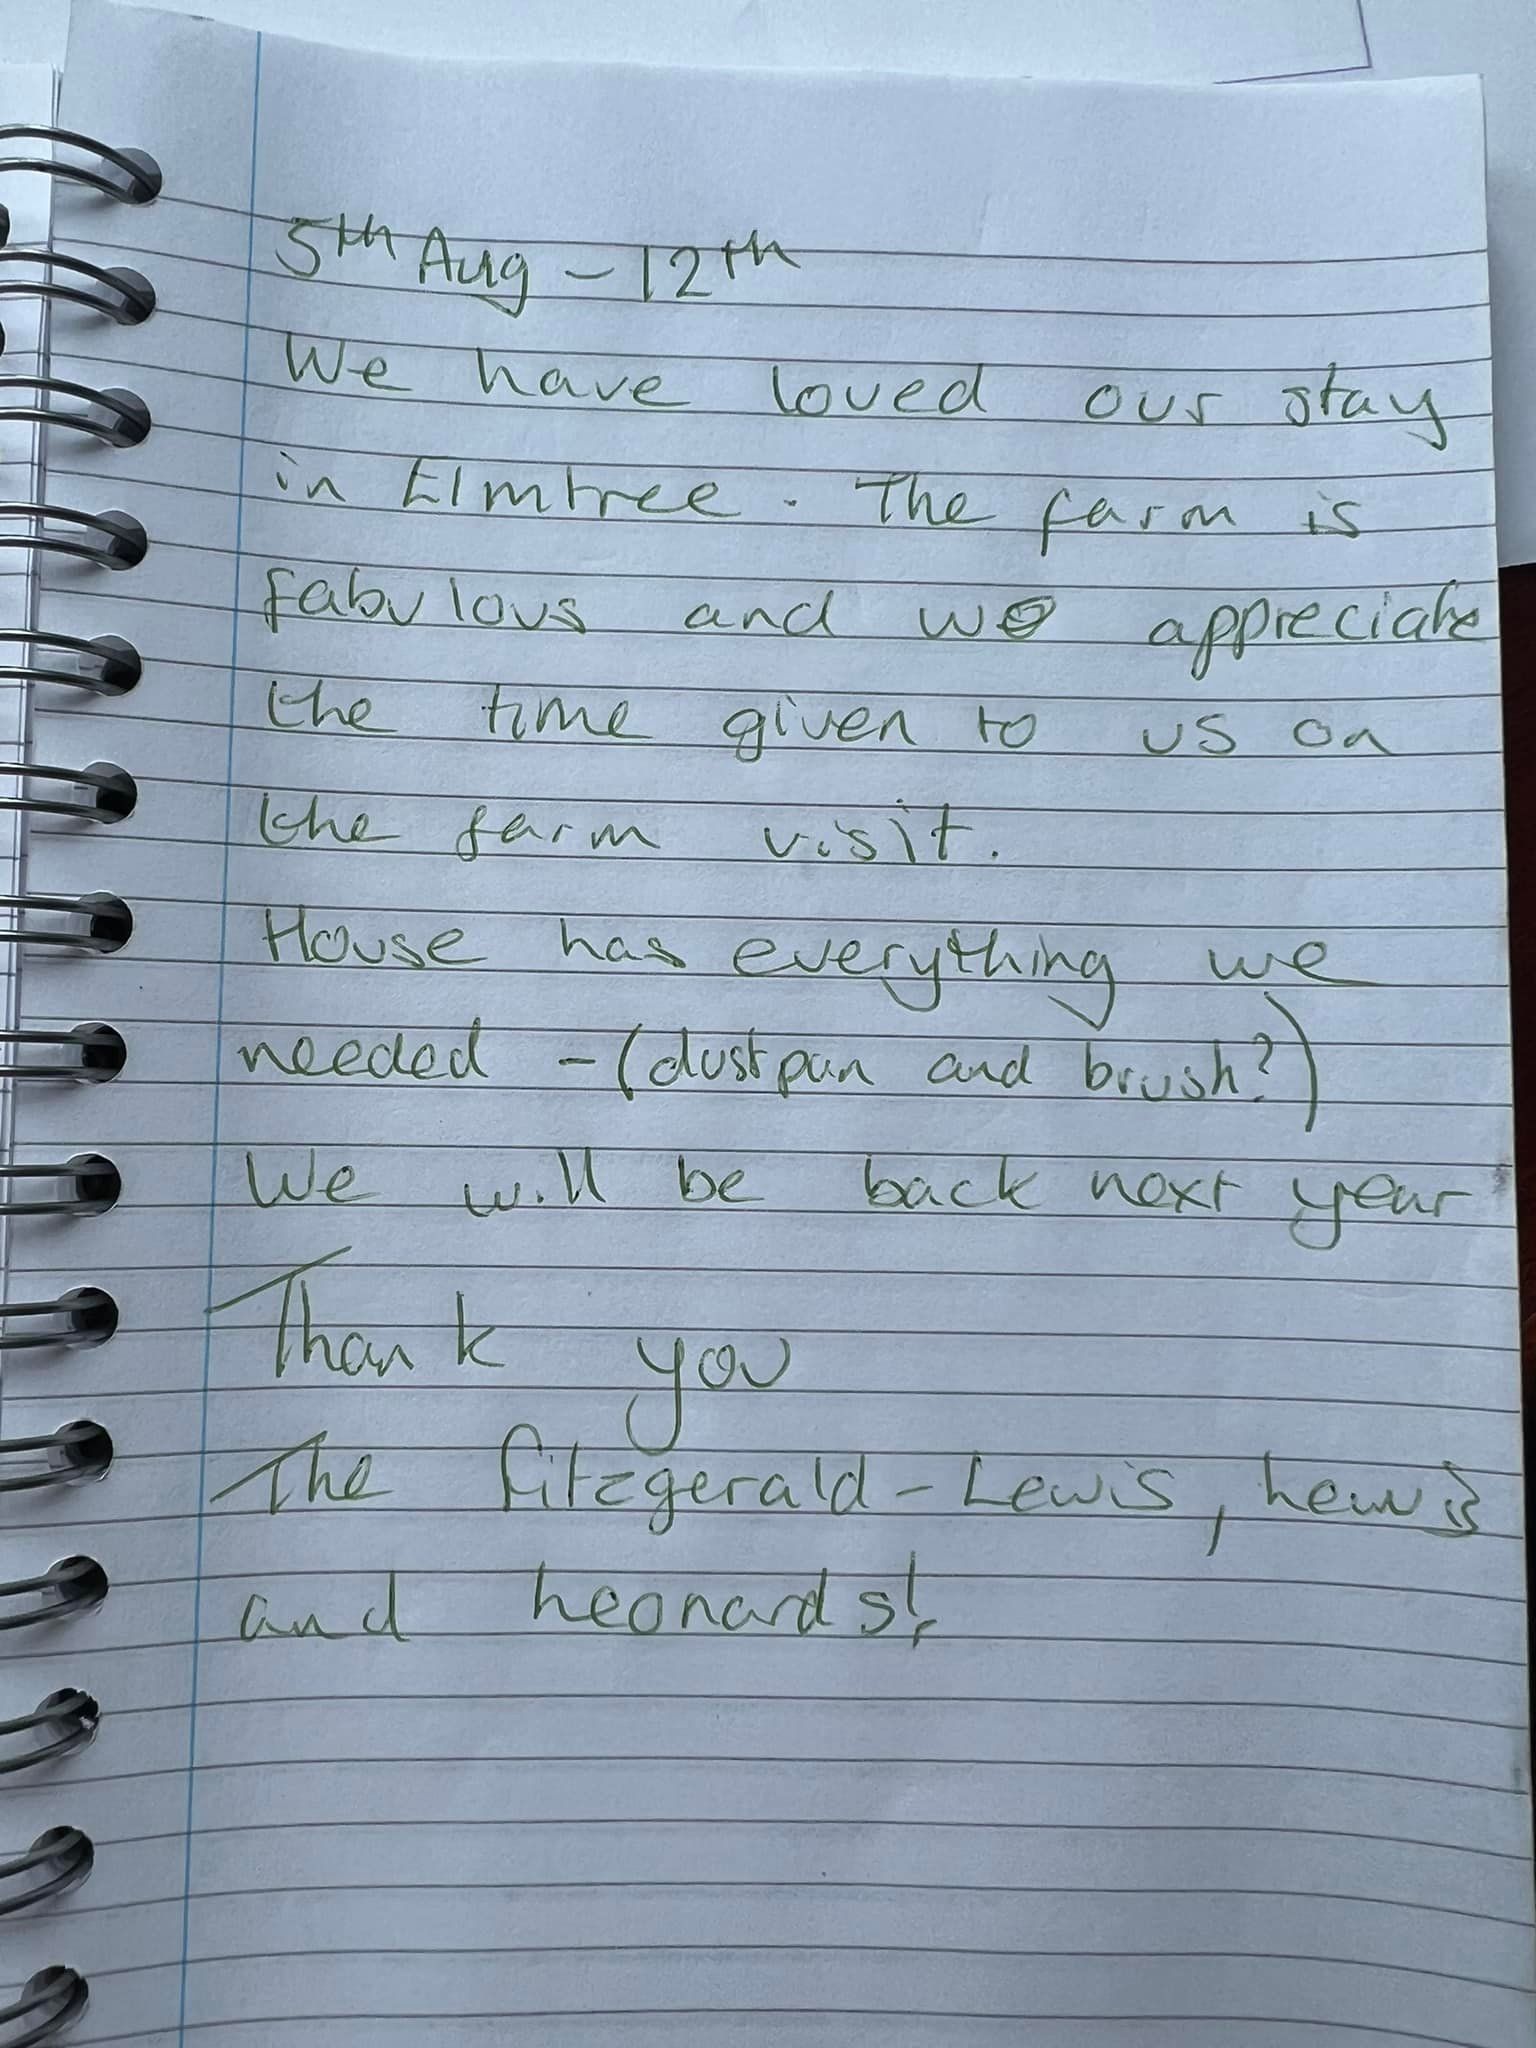 5th Aug – 12th
We have loved our stay
in Elmtree. The farm is
fabulous and we appreciate
the time given to us on
the farm visit.
House has everything we
needed – (dustpan and brush?)
We will be back next year
Thank you
The Fitzgerald – Lewis, Lewis
and Leonards!